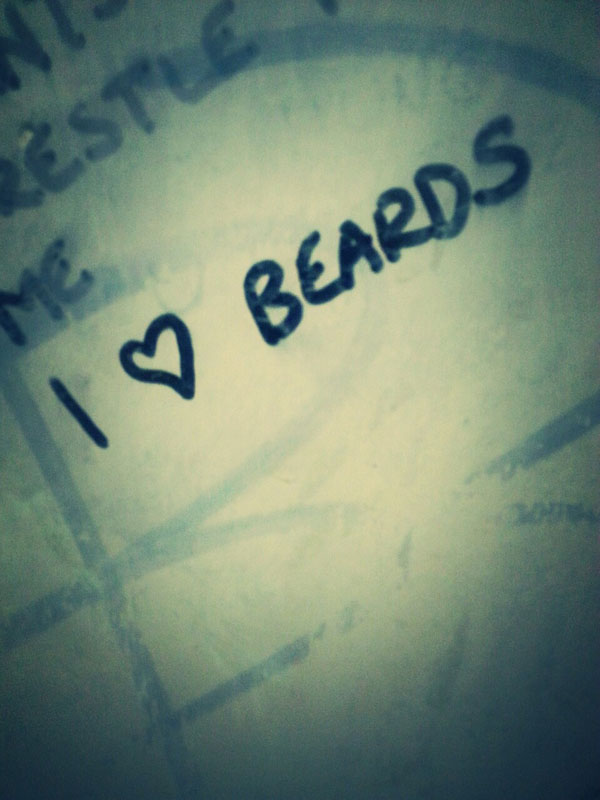 RESTLE
ME
I ♡ BEARDS